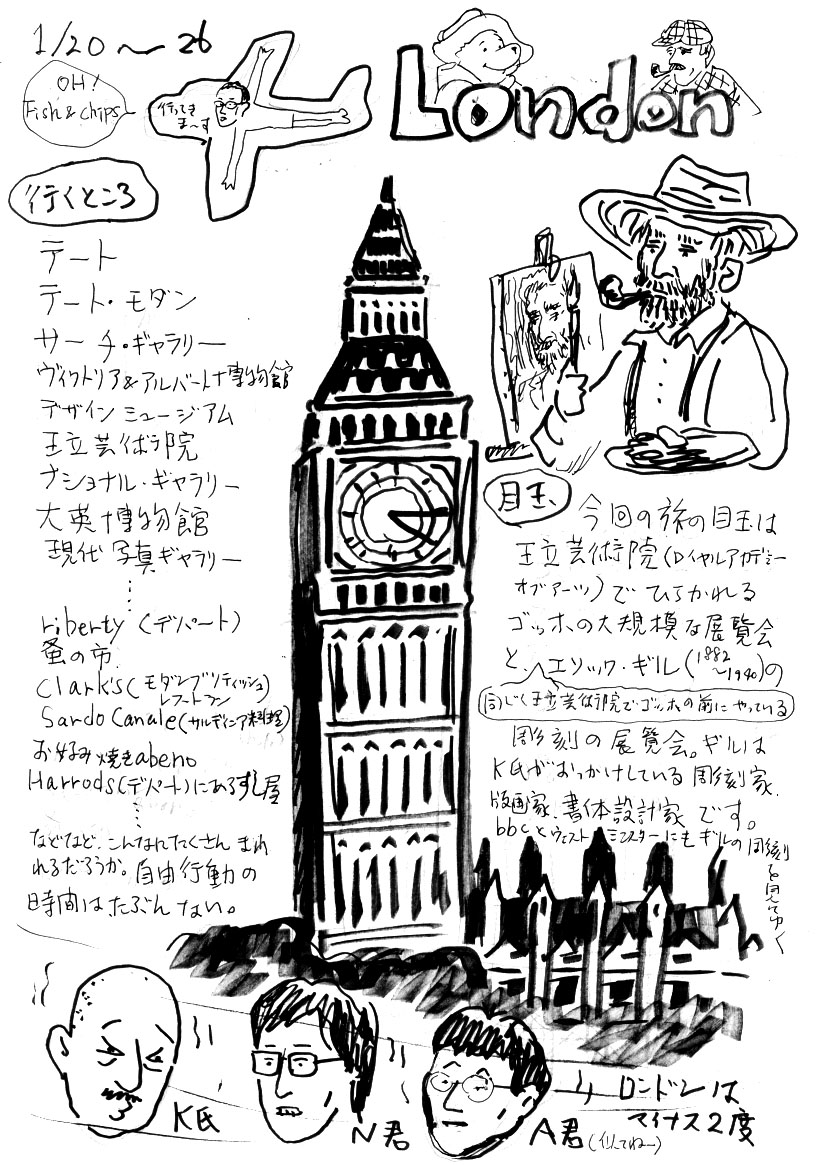 1/20〜26
OH!
Fish & chips
行ってき
ま〜す
London
行くところ
テート
テート・モダン
サーチ・ギャラリー
ヴィクトリア&アルバート博物館
デザインミュージアム
王立芸術院
ナショナル・ギャラリー
大英博物館
現代写真ギャラリー
⋮
riberty (デパート)
蚤の市
Clark's(モダンブリティッシュ
レストラン)
Sardo Canale(サルディニア料理)
お好み焼きabeno
Harrods(デパート)にあるすし屋
⋮
などなど、こんなにたくさんまわ
れるだろうか。自由行動の
時間はたぶんない。
目玉
今回の旅の目玉は
王立芸術院(ロイヤルアカデミー
オブアーツ)でひらかれる
ゴッホの大規模な展覧会
と、エリック・ギル(1882〜1940)の
同じく王立芸術院でゴッホの前にやっている
彫刻の展覧会。ギルは
K氏がおっかけしている彫刻家、
版画家、書体設計家です。
bbcとウェストミンスターにもギルの彫刻
を見てゆく
K氏
N君
A君(似てねー)
ロンドンは
マイナス2度